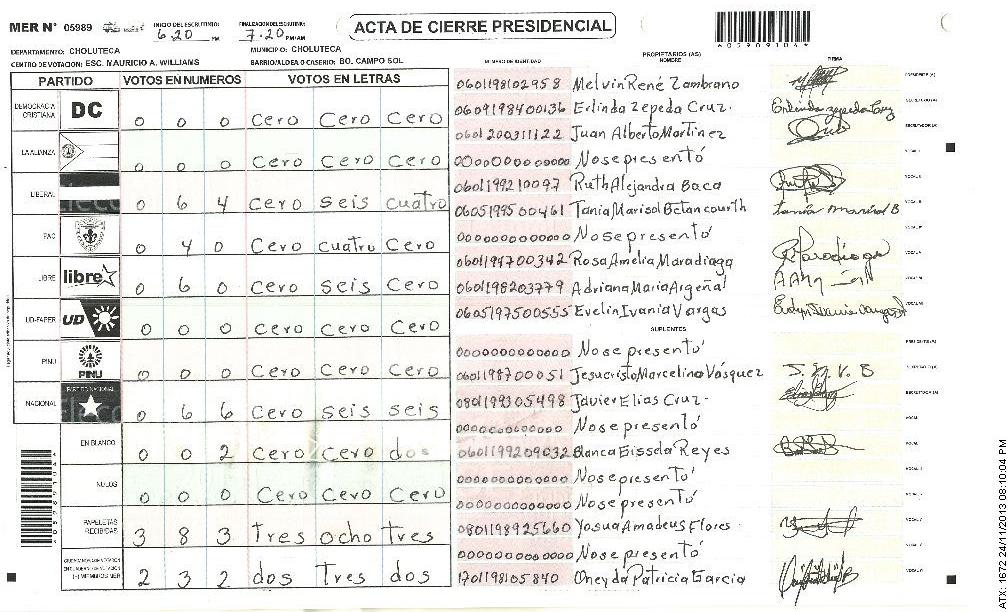 MER N° 05989
INICIO DEL ESCRUTINIO: 6.20 PM
FINALIZACION DEL ESCRUTINIO: 7.20 PM/AM
ACTA DE CIERRE PRESIDENCIAL
DEPARTAMENTO: CHOLUTECA
MUNICIPIO: CHOLUTECA
CENTRO DE VOTACION: ESC. MAURICIO A. WILLIAMS
BARRIO/ALDEA O CASERIO: BO. CAMPO SOL
PARTIDO VOTOS EN NUMEROS VOTOS EN LETRAS
DEMOCRACIA CRISTIANA DC 0 0 0 Cero Cero Cero
LA ALIANZA 0 0 0 Cero Cero Cero
LIBERAL 0 6 4 Cero seis cuatro
PAC 0 4 0 Cero cuatro Cero
LIBRE libre 0 6 0 Cero seis Cero
UD-FAPER UD 0 0 0 Cero Cero Cero
PINU PINU 0 0 0 Cero Cero Cero
NACIONAL PARTIDO NACIONAL 0 6 6 Cero seis seis
EN BLANCO 0 0 2 Cero Cero dos
NULOS 0 0 0 Cero Cero Cero
PAPELETAS RECIBIDAS 3 8 3 Tres ocho Tres
(+) MIEMBROS MER 2 3 2 dos Tres dos
NUMERO DE IDENTIDAD
PROPIETARIOS (AS)
NOMBRE
FIRMA
0601198102958 Melvin René Zambrano
0609198400136 Erlinda Zepeda Cruz. Erlinda Zepeda Cruz
0601200311122 Juan Alberto Martinez
0000000000000 No se presentó
0601199210097 Ruth Alejandra Baca
0605199500461 Tania Marisol Betancourth Tania Marisol B
0000000000000 No se presentó
0601197700342 Rosa Amelia Maradiaga
0601198203779 Adriana Maria Argeñal
0605197500555 Evelin Ivania Vargas
SUPLENTES
0000000000000 No se presentó
0601198700051 Jesucristo Marcelino Vásquez
0801199305498 Javier Elias Cruz.
0000000000000 No se presentó
0601199209032 Blanca Gissela Reyes
0000000000000 No se presentó
0000000000000 No se presentó
0801198925660 Yosua Amadeus Flores
0000000000000 No se presentó
1701198105840 Oneyda Patricia Garcia
ATX: 1672 24/11/2013 08:10:04 PM